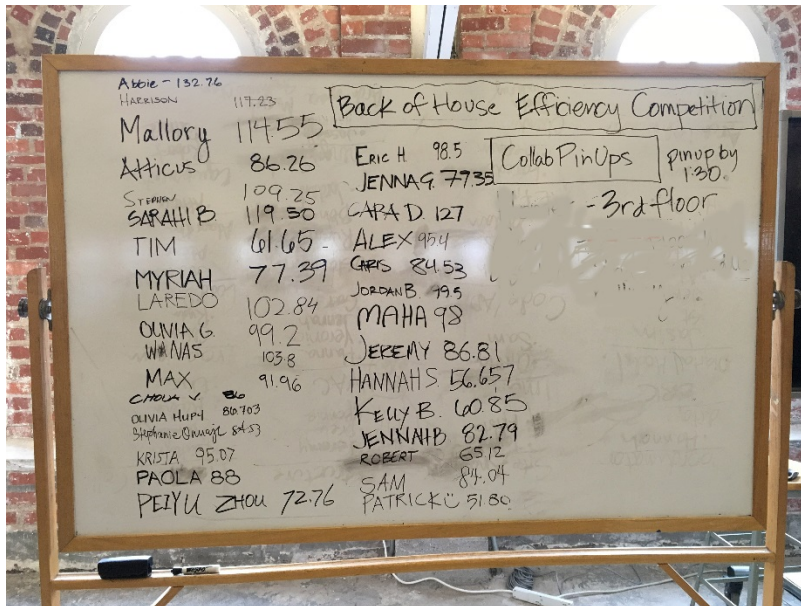 Abbie - 132.76
HARRISON 117.23
Mallory 114.55
Atticus 86.26
STEPHEN 109.25
SARAHI B 119.50
TIM 61.65
MYRIAH 77.39
LAREDO 102.84
OLIVIA G. 99.2
WANAS 103.8
MAX 91.96
CHOUA V. 86
OLIVIA HUPY 86.703
Stephanie 84.53
KRISTA 95.07
PAOLA 88
PEIYU ZHOU 72.76
Back of House Efficiency Competition
ERIC H 98.5
JENNA G. 77.35
CARA D. 127
ALEX 95.4
CHRIS 84.53
JORDAN B. 99.5
MAHA 98
JEREMY 86.81
HANNAH S. 56.657
KELLY B. 60.85
JENNAH B 82.79
ROBERT 65.12
SAM 84.04
PATRICK 51.80
Collab Pin Ups
pin up by
1:30.
- 3rd floor